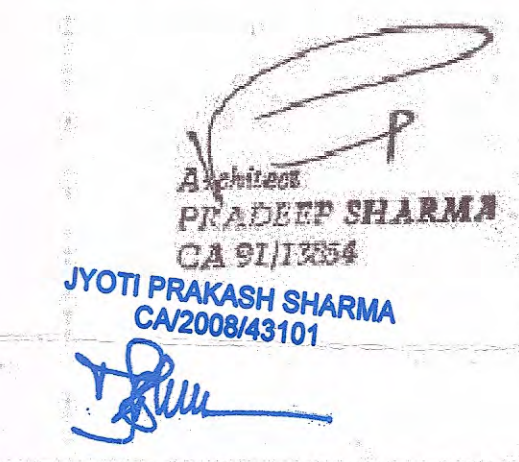 Architect
PRADEEP SHARMA
JYOTI PRAKASH SHARMA
CA/2008/43101